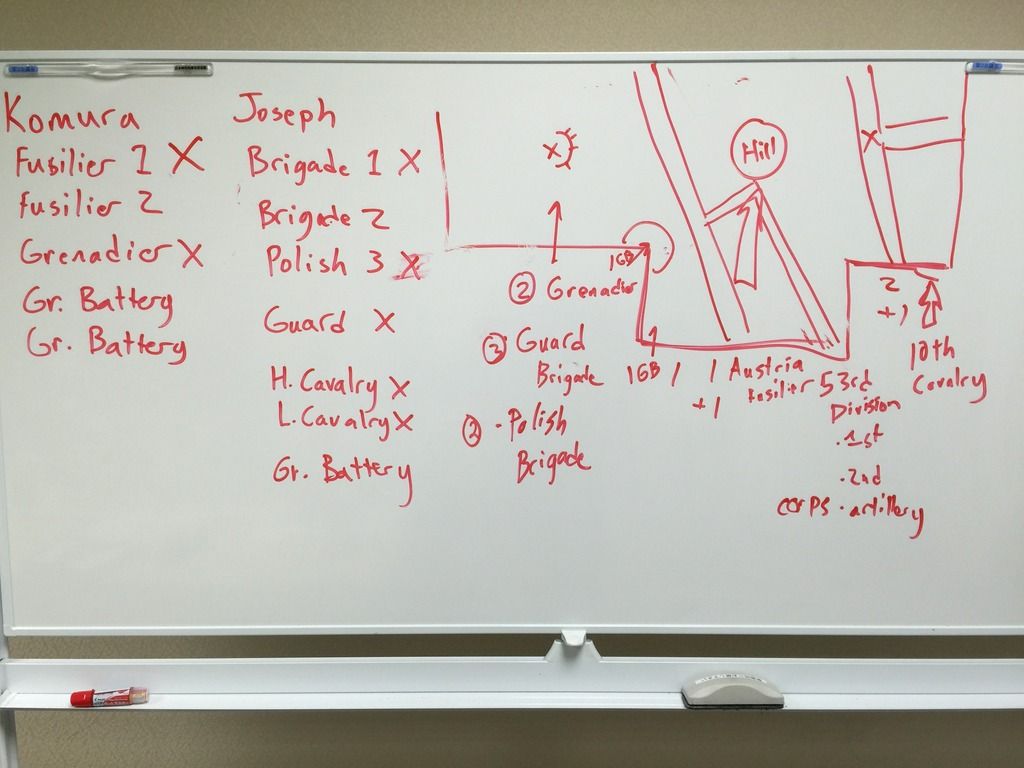 Komura
Fusilier 1 X
Fusilier 2
Grenadier X
Gr. Battery
Gr. Battery
Joseph
Brigade 1 X
Brigade 2
Polish 3 X
Guard X
H. Cavalry X
L. Cavalry X
Gr. Battery
X
1GB
② Grenadier
③ Guard
Brigade
② · Polish
Brigade
Hill
X
1GB 1
1
+1
Austria
Fusilier
53rd
Division
· 1st
· 2nd
corps · artillery
2
+1
10th
Cavalry